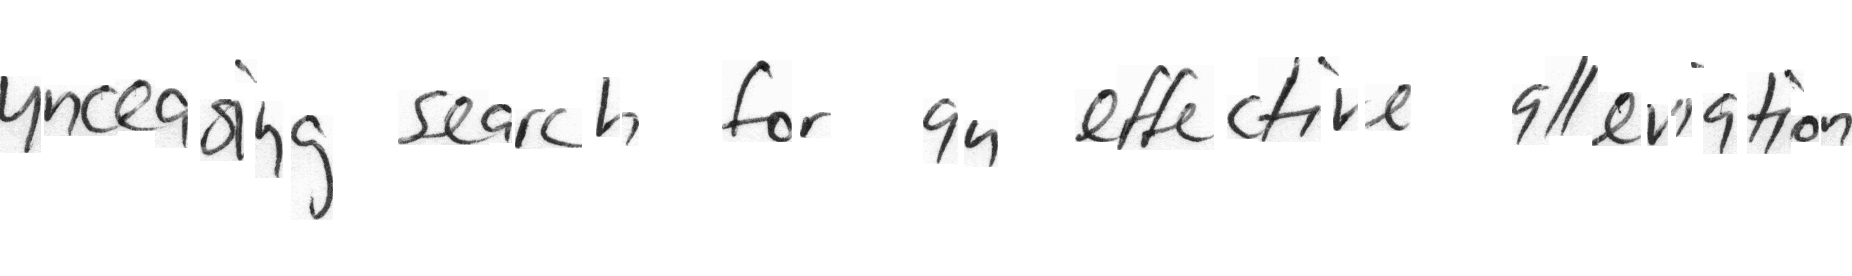 unceasing search for an effective alleviation